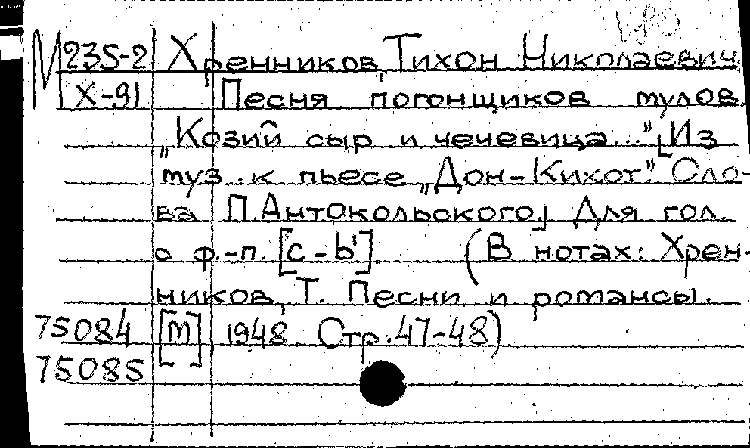 М 235-2 Хренников, Тихон Николаевич
Х-91 Песня погонщиков мулов.
„Козий сыр и чечевица..." [Из
муз. к пьесе „Дон-Кихот". Сло-
ва П. Антокольского] Для гол.
с ф.-п. [c - b']. (В нотах: Хрен-
ников, Т. Песни и романсы.
75084 [М] 1948. Стр. 47-48)
75085